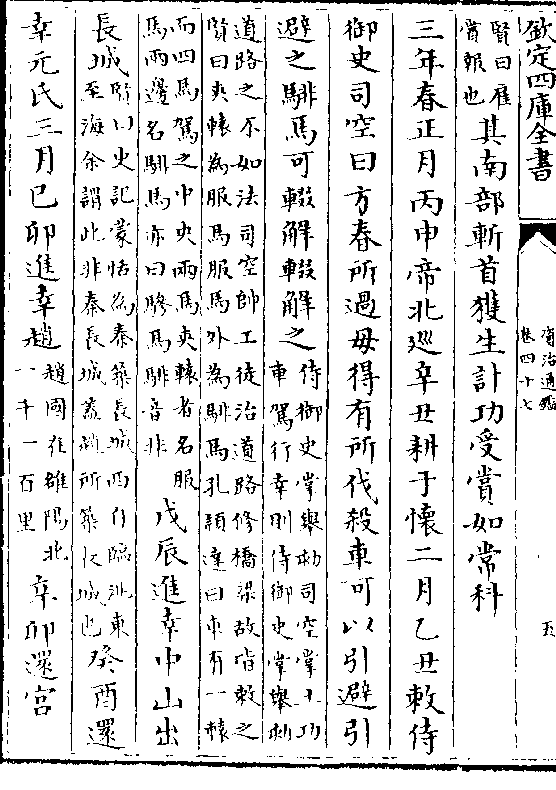 欽定四庫全書
資治通鑑
卷四十七
五
賢曰雇
賞報也
其南部斬首獲生計功受賞如常科
三年春正月丙申帝北巡辛丑耕于懷二月乙丑敕侍
御史司空曰方春所過毋得有所伐殺車可以引避引
避之騑馬可輟解輟解之
侍御史掌舉劾司空掌土功
車駕行幸則侍御史掌舉劾
道路之不如法司空帥工徒治道路修橋梁故皆敕之
賢曰夾轅為服馬服馬外為騑馬孔頴達曰車有一轅
而四馬駕之中央兩馬夾轅者名服
馬兩邊名騑馬亦曰驂馬騑音非
戊辰進幸中山出
長城
賢曰史記蒙恬為秦築長城西自臨洮東
至海余謂此非秦長城葢趙所築長城也
癸酉還
幸元氏三月己卯進幸趙
趙國在雒陽北
一千一百里
辛卯還宮